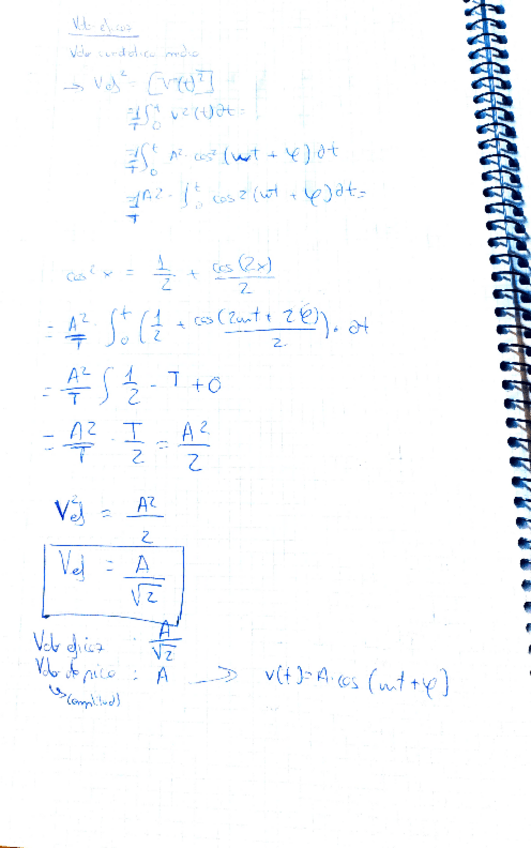 Valor eficaz
Valor cuadrático medio
→ Vef² = [v(t)²]
= 1/T ∫₀ᵗ v²(t)∂t =
= 1/T ∫₀ᵗ A² · cos² (wt + φ) ∂t
= 1/T A² · ∫₀ᵗ cos² (wt + φ) ∂t =
cos² x = 1/2 + cos(2x)/2
= A²/T · ∫₀ᵗ (1/2 + cos(2wt + 2φ)/2) · ∂t
= A²/T ∫ 1/2 - T + 0
= A²/T · T/2 = A²/2
V²ef = A²/2
Vef = A/√2
Valor eficaz : A/√2
Valor de pico : A → v(t) = A · cos (wt + φ)
↳ (amplitud)